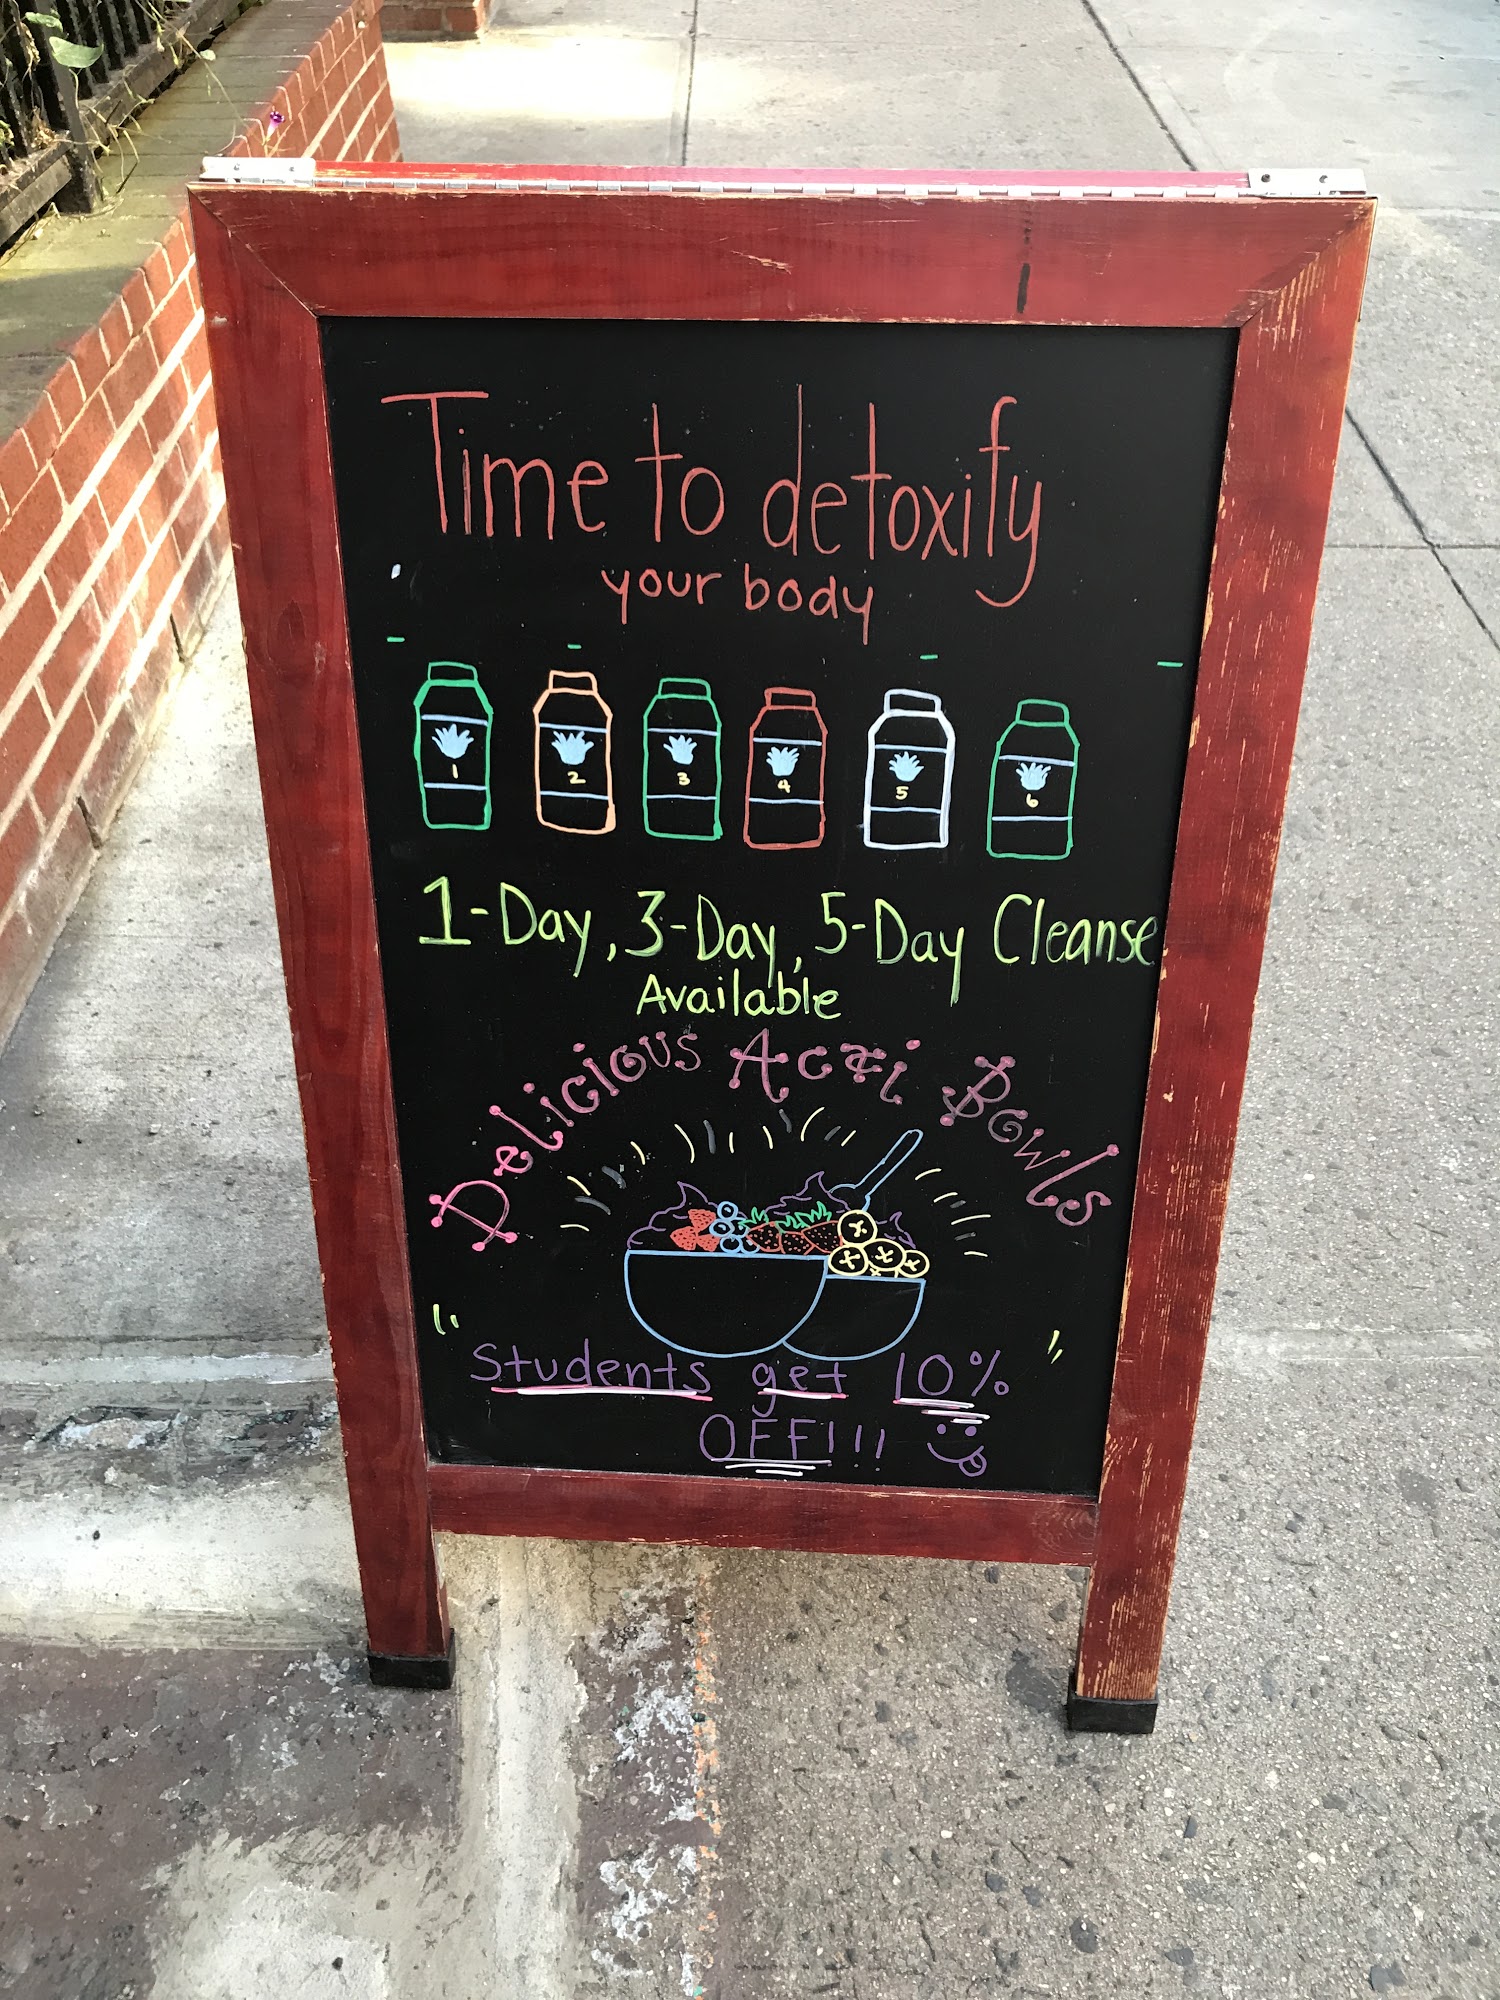 Time to detoxify
your body
1 2 3 4 5 6
1-Day, 3-Day, 5-Day Cleanse
Available
Delicious Acai Bowls
Students get 10%
OFF!!!